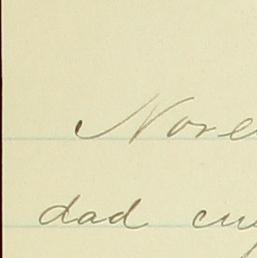 Nove
dad cu